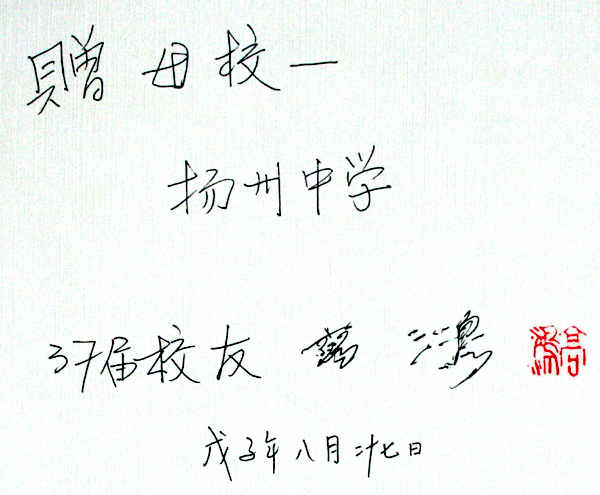 贈母校—
扬州中学
37届校友
戊子年八月二十七日